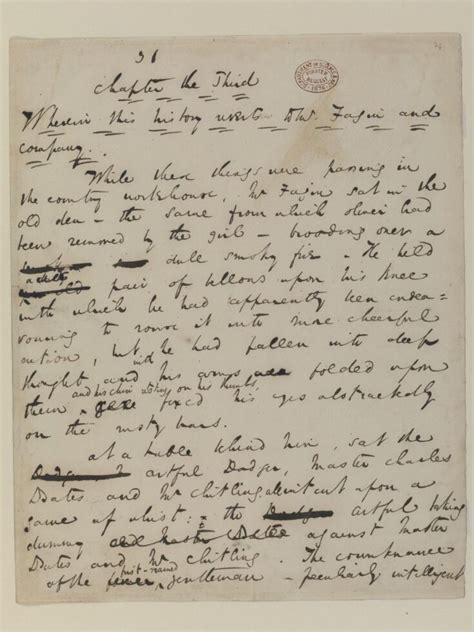 31
Chapter the Third
Wherein this history reverts to Mr. Fagin and
company.
While these things were passing in
the country workhouse, Mr Fagin sat in the
old den — the same from which Oliver had
been removed by the girl — brooding over a
dull smoky fire — He held
a pair of bellows upon his knee
with which he had apparently been endea-
vouring to rouse it into more cheerful
action, but he had fallen into deep
thought and with his arms folded upon
and his chin resting on his thumbs,
them fixed his eyes abstractedly
on the rusty bars.
At a table behind him, sat the
Artful Dodger, Master Charles
Bates and Mr Chitling all intent upon a
game of whist: the Artful taking
dummy against Master
Bates and Mr Chitling. The countenance
of the first-named gentleman — peculiarly intelligent